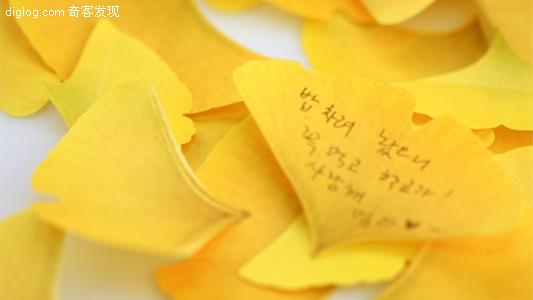 diglog.com 奇客发现
밥 차려 놨으니
꼭 먹고 학교가!
사랑해
엄마 ♥ ~